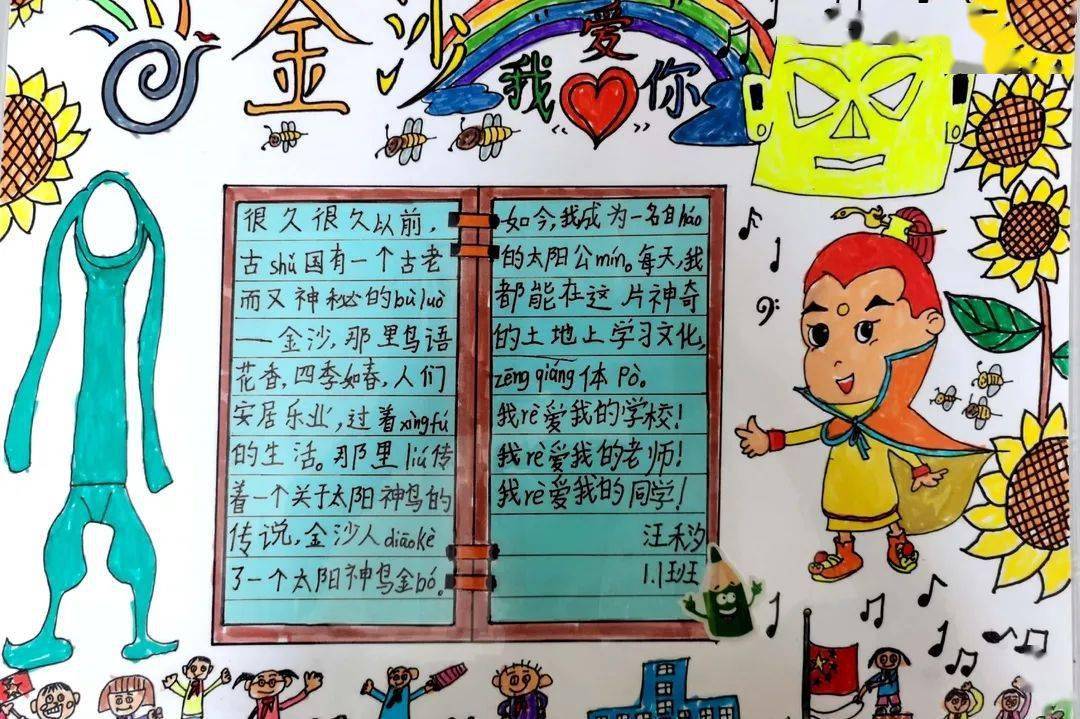 金沙
我爱你
很久很久以前，
古shǔ国有一个古老
而又神秘的bù luò
—金沙，那里鸟语
花香，四季如春，人们
安居乐业，过着xìng fú
的生活。那里liú传
着一个关于太阳神鸟的
传说，金沙人diāo kè
了一个太阳神鸟金bó。
如今，我成为一名自háo
的太阳公mín。每天，我
都能在这片神奇
的土地上学习文化，
zēng qiáng体Pò。
我rè爱我的学校！
我rè爱我的老师！
我rè爱我的同学！
汪禾汐
1.1班